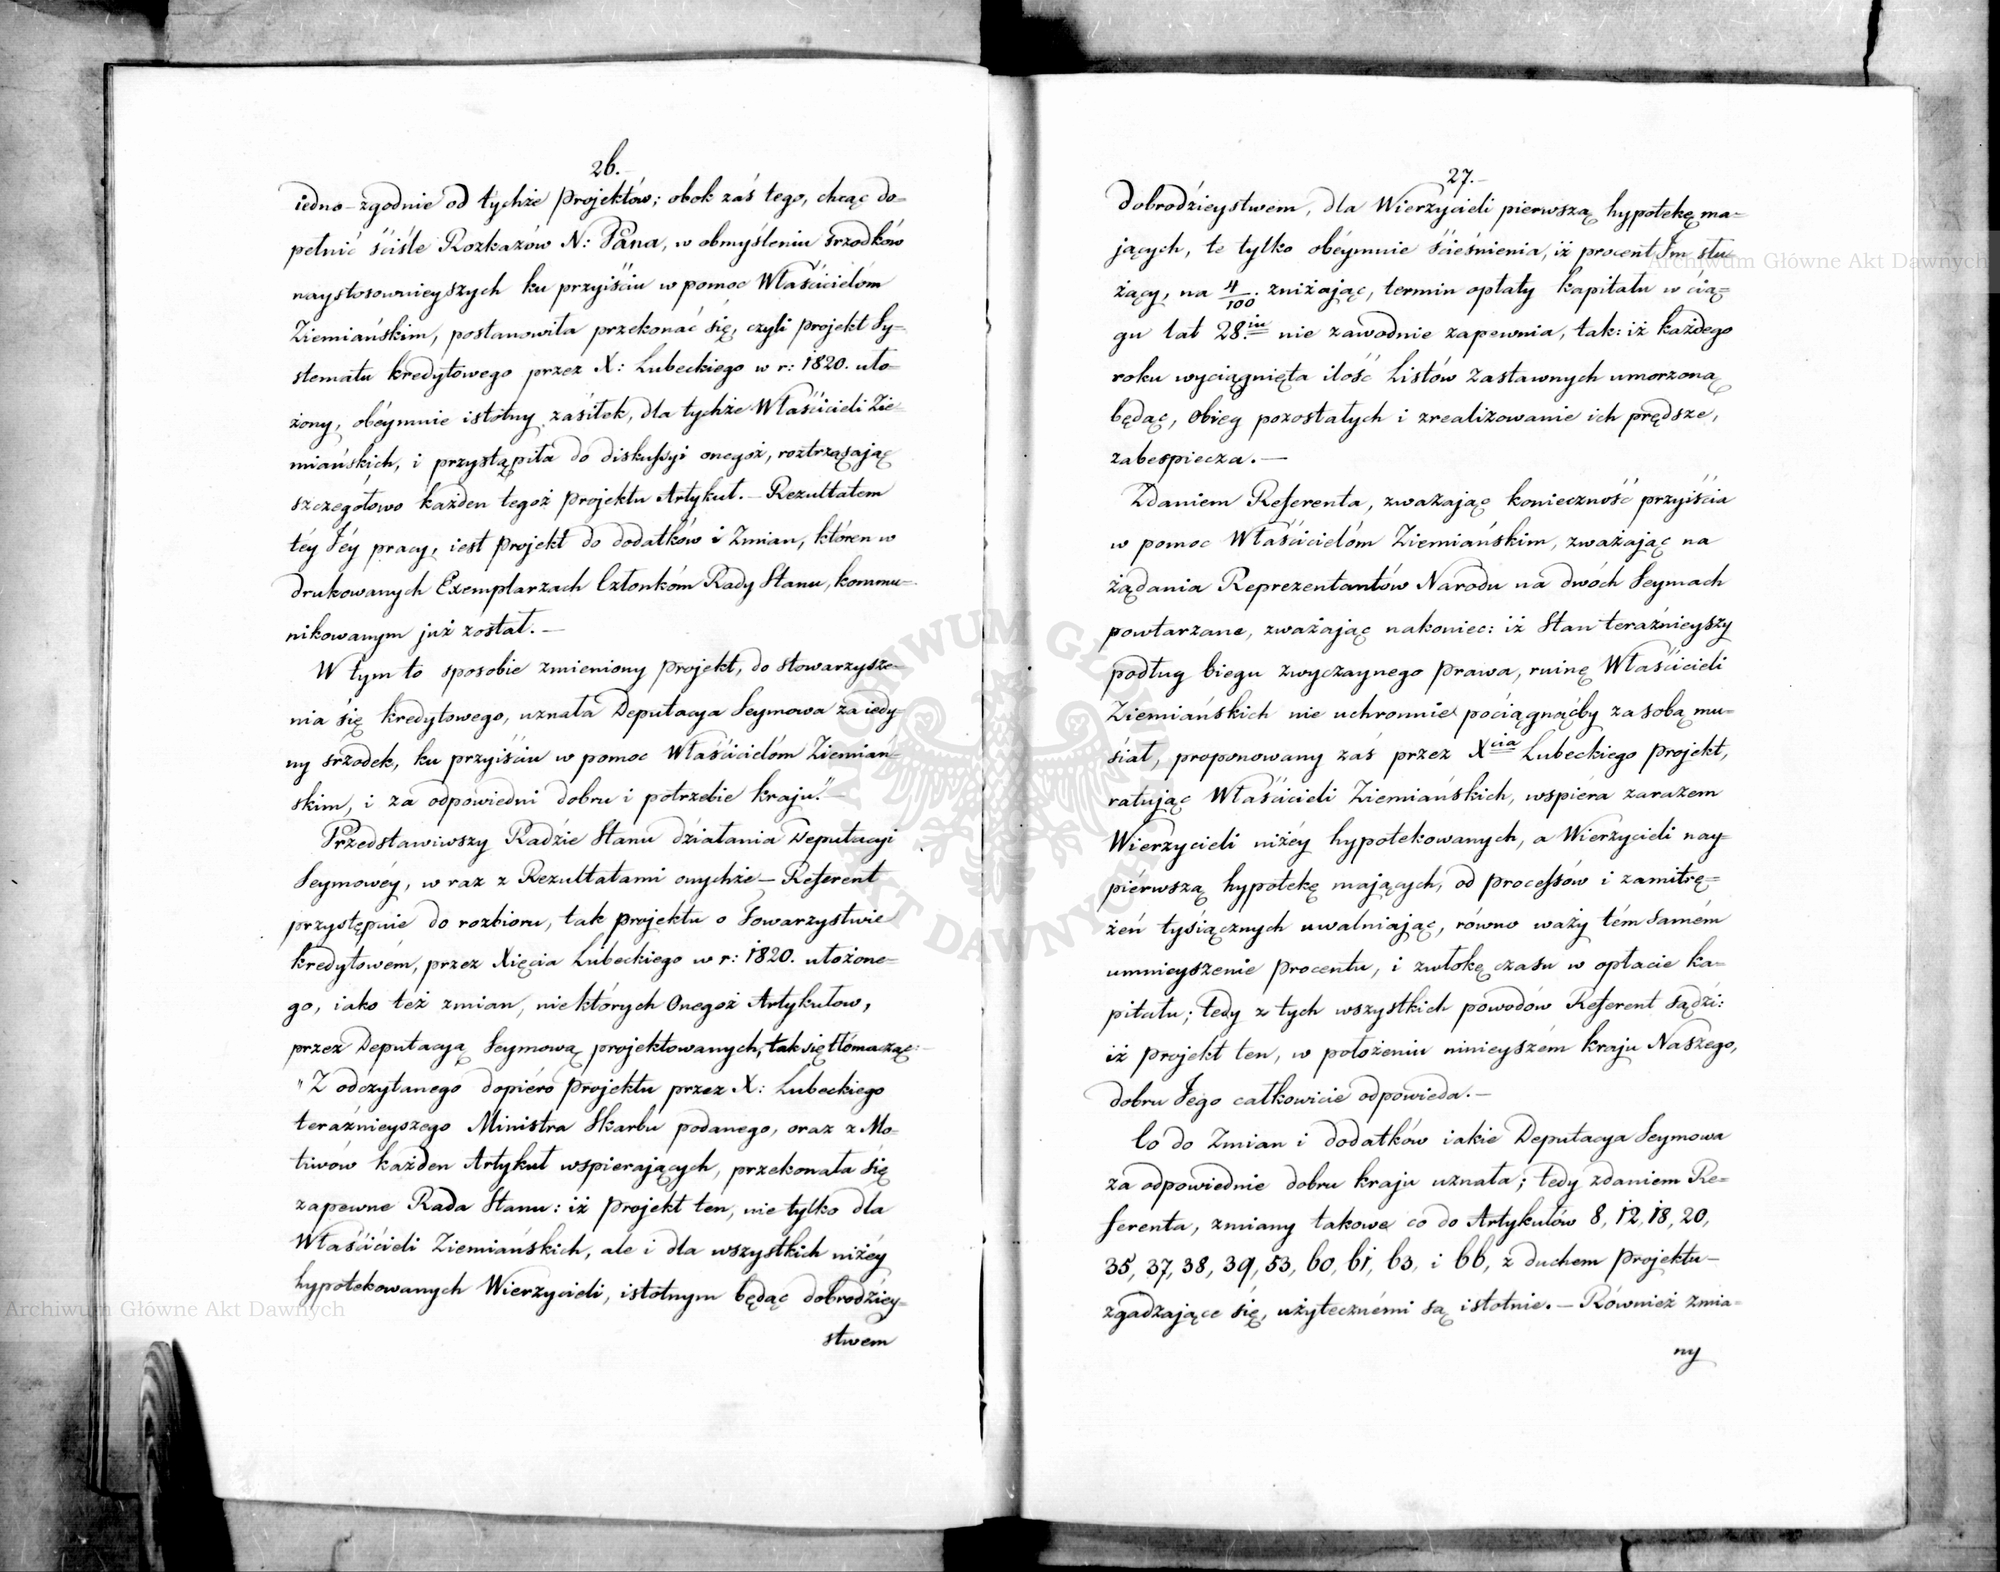 26.
iedno-zgodnie od tychże Projektów; obok zaś tego, chcąc do=
pełnić ściśle Rozkazów N: Pana, w obmyśleniu srzodków
naystosownieyszych ku przyiściu w pomoc Właścicielóm
Ziemiańskim, postanowiła przekonać się, czyli projekt Sy=
stematu kredytowego przez X: Lubeckiego w r: 1820. uło=
żony, obéymuie istotny zasiłek, dla tychże Właścicieli Zie=
miańskich, i przystąpiła do diskussyi onegoż, roztrząsaiąc
szczegółowo każden tegoż Projektu Artykuł. — Rezultatem
téy Jéy pracy, iest Projekt do dodatków i Zmian, któren w
drukowanych Exemplarzach Członkóm Rady Stanu, kommu=
nikowanym już został. —
W tym to sposobie zmieniony projekt, do stowarzysze=
nia się kredytowego, uznała Deputacya Seymowa za iedy=
ny srzodek, ku przyiściu w pomoc Właścicielóm Ziemiań=
skim, i za odpowiedni dobru i potrzebie kraju." —
Przedstawiwszy Radzie Stanu działania Deputacyi
Seymowéy, w raz z Rezultatami onychże — Referent
przystępuie do rozbioru, tak projektu o Towarzystwie
kredytowém, przez Xięcia Lubeckiego w r: 1820. ułożone=
go, iako też zmian, niektórych Onegoż Artykułow,
przez Deputacyą Seymową projektowanych, tak się tłómacząc: —
"Z odczytanego dopiéro Projektu przez X: Lubeckiego
teraźnieyszego Ministra Skarbu podanego, oraz z Mo=
tiwów każden Artykuł wspieraiących, przekonała się
zapewne Rada Stanu: iż Projekt ten, nie tylko dla
Właścicieli Ziemiańskich, ale i dla wszystkich niżéy
hypotekowanych Wierzycieli, istotnym będąc dobrodziey=
stwem
27.
Dobrodzieystwem, dla Wierzycieli pierwszą hypotekę ma=
jących, te tylko obéymuie ścieśnienia, iż procent Im słu=
żący, na 4/100. zniżając, termin opłaty kapitału w cią=
gu lat 28.iu nie zawodnie zapewnia, tak: iż każdego
roku wyciągnięta ilość Listów Zastawnych umorzoną
będąc, Obieg pozostałych i zrealizowanie ich prędsze,
zabespiecza. —
Zdaniem Referenta, zważając konieczność przyiścia
w pomoc Właścicielóm Ziemiańskim, zważając na
żądania Reprezentantów Narodu na dwóch Seymach
powtarzane, zważając nakoniec: iż Stan teraźnieyszy
podług biegu zwyczaynego Prawa, ruinę Właścicieli
Ziemiańskich nie uchronnie pociągnąćby za sobą mu=
siał, proponowany zaś przez Xcia Lubeckiego Projekt,
ratując Właścicieli Ziemiańskich, wspiéra zarazem
Wierzycieli niżéy hypotekowanych, a Wierzycieli nay=
piérwszą hypotekę mających, od Processów i zamitrę=
żeń tysiącznych uwalniając, równo waży tém samém
umnieyszenie Procentu, i zwłokę czasu w opłacie ka=
pitału; tedy z tych wszystkich powodów Referent sądzi:
iż projekt ten, w położeniu ninieyszém kraju Naszego,
dobru Jego całkowicie odpowieda. —
Co do Zmian i dodatków iakie Deputacya Seymowa
za odpowiednie dobru kraju uznała; tedy zdaniem Re=
ferenta, zmiany takowe co do Artykułów 8, 12, 18, 20,
35, 37, 38, 39, 53, 60, 61, 63, i 66, z duchem Projektu —
zgadzające się, użytecznémi są istotnie. — Również zmia=
ny